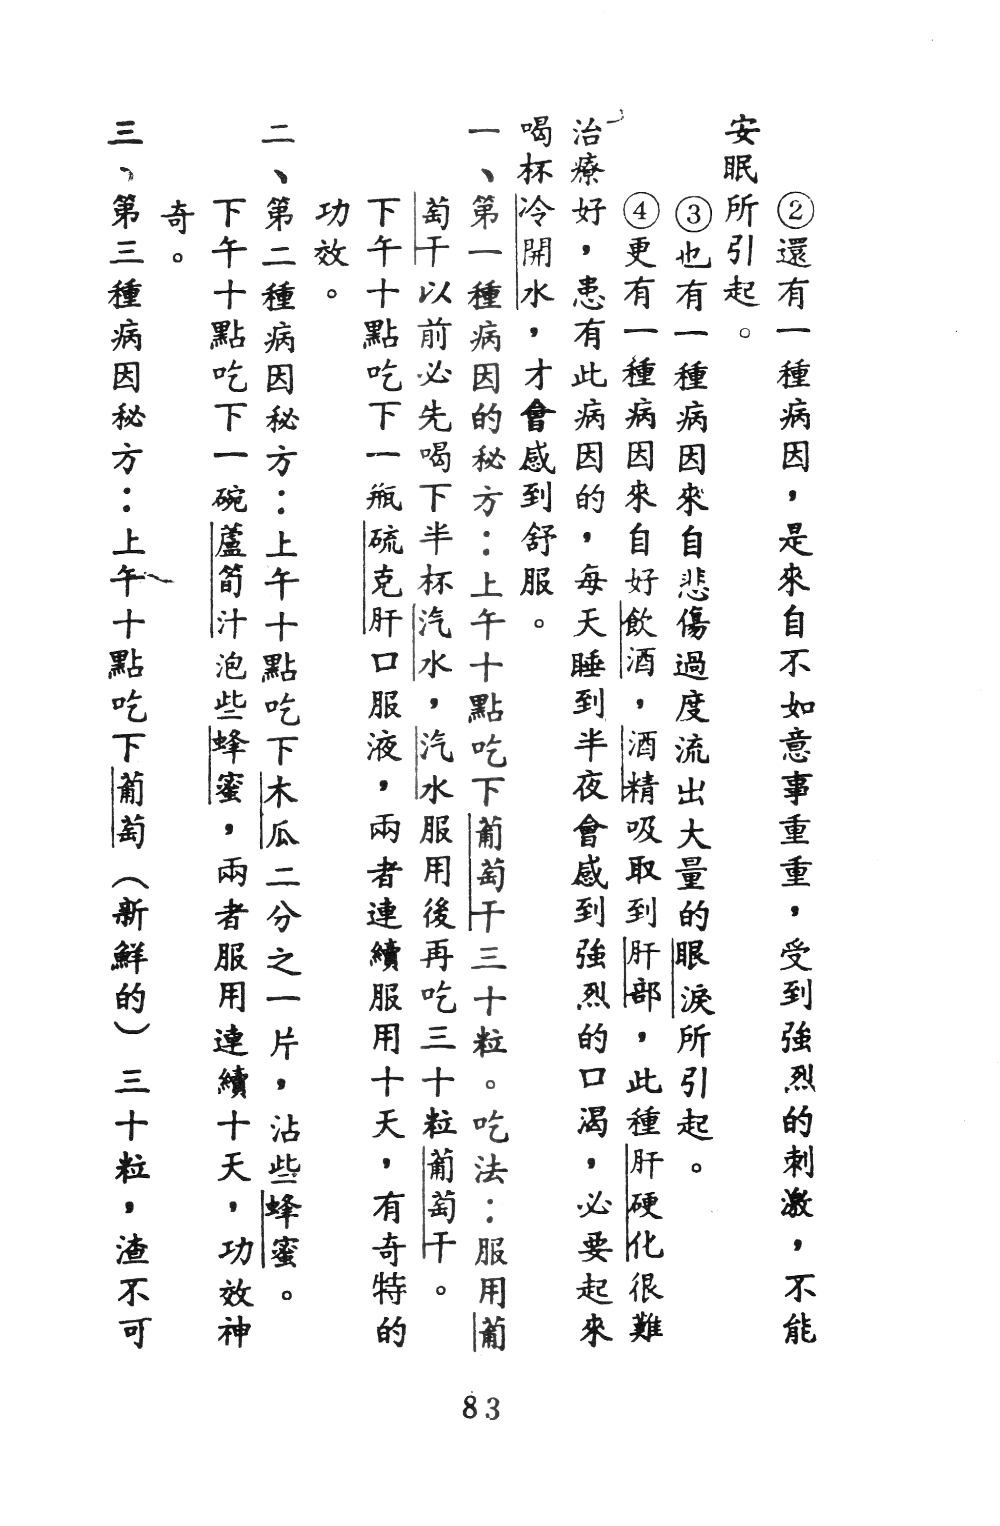 ②還有一種病因，是來自不如意事重重，受到強烈的刺激，不能
安眠所引起。
③也有一種病因來自悲傷過度流出大量的眼淚所引起。
④更有一種病因來自好飲酒，酒精吸取到肝部，此種肝硬化很難
治療好，患有此病因的，每天睡到半夜會感到強烈的口渴，必要起來
喝杯冷開水，才會感到舒服。
一、第一種病因的秘方：上午十點吃下葡萄干三十粒。吃法：服用葡
萄干以前必先喝下半杯汽水，汽水服用後再吃三十粒葡萄干。
下午十點吃下一瓶硫克肝口服液，兩者連續服用十天，有奇特的
功效。
二、第二種病因秘方：上午十點吃下木瓜二分之一片，沾些蜂蜜。
下午十點吃下一碗蘆筍汁泡些蜂蜜，兩者服用連續十天，功效神
奇。
三、第三種病因秘方：上午十點吃下葡萄（新鮮的）三十粒，渣不可
83